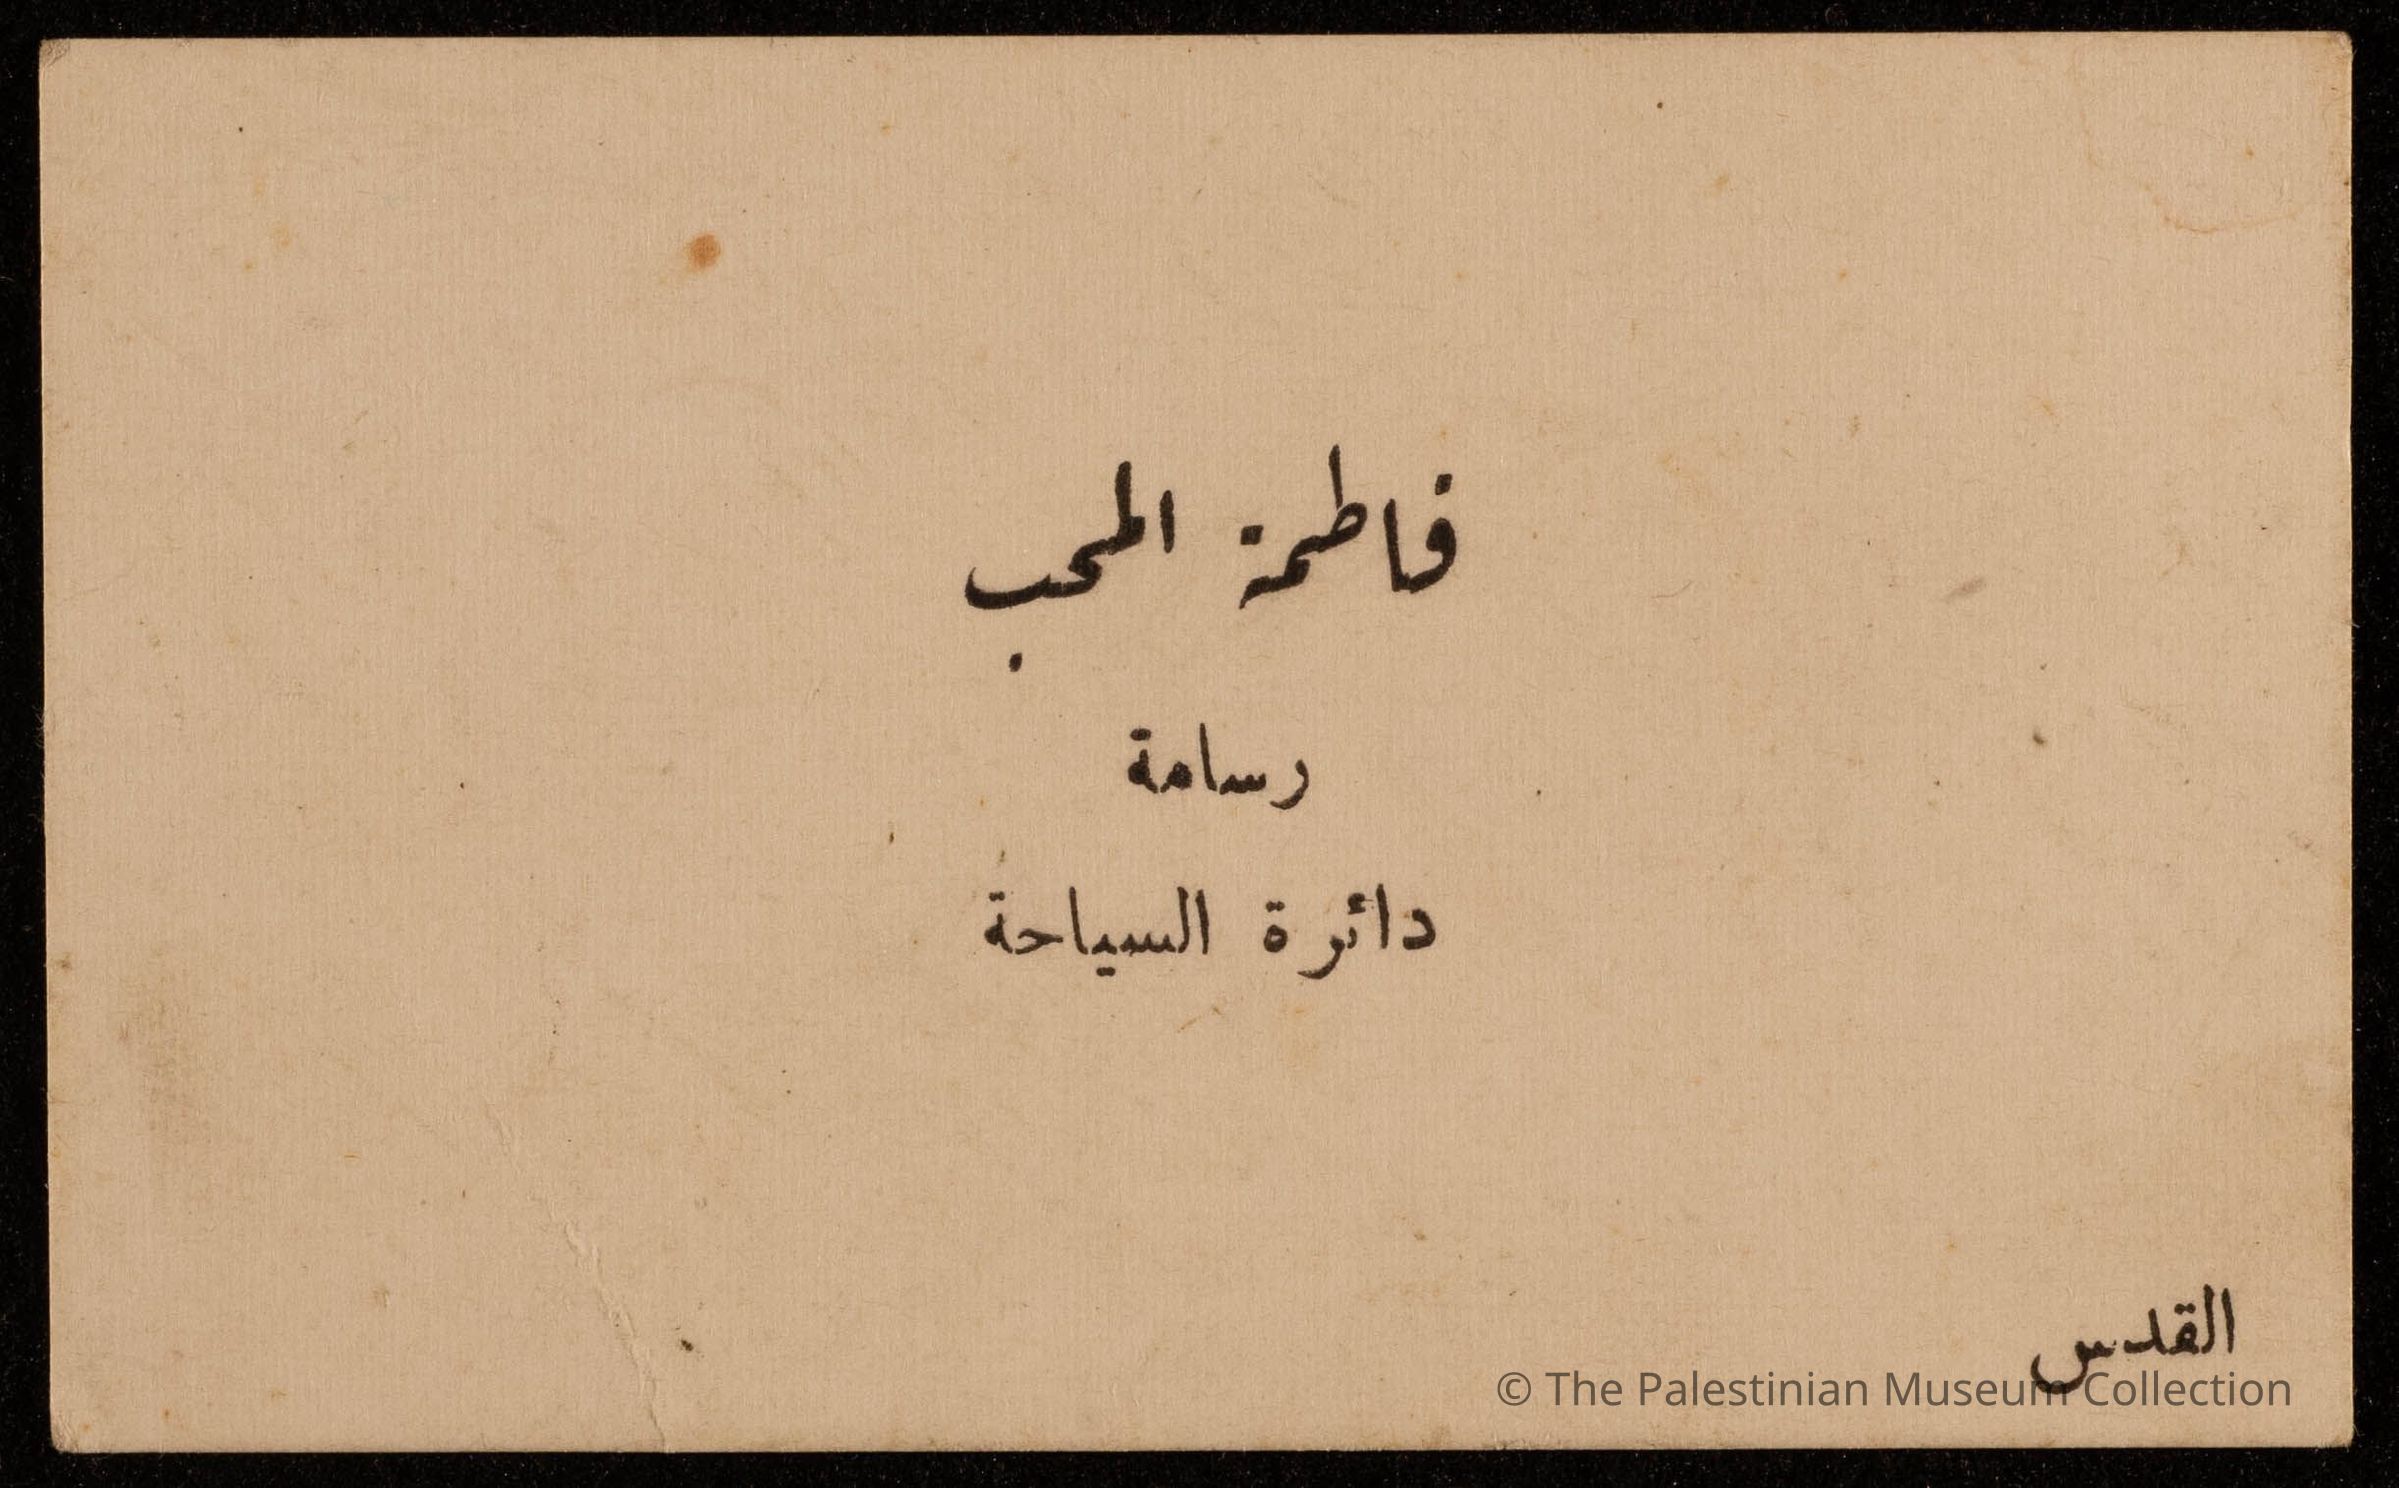 فاطمة المحب
رسامة
دائرة السياحة
القدس
© The Palestinian Museum Collection